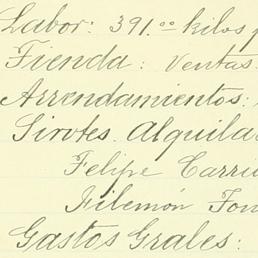 Labor: 391.00 kilos
Tienda: Ventas
Arrendamientos:
Sirotes. Alquila
Felipe Carri
Filemón Fon
Gastos Grales: